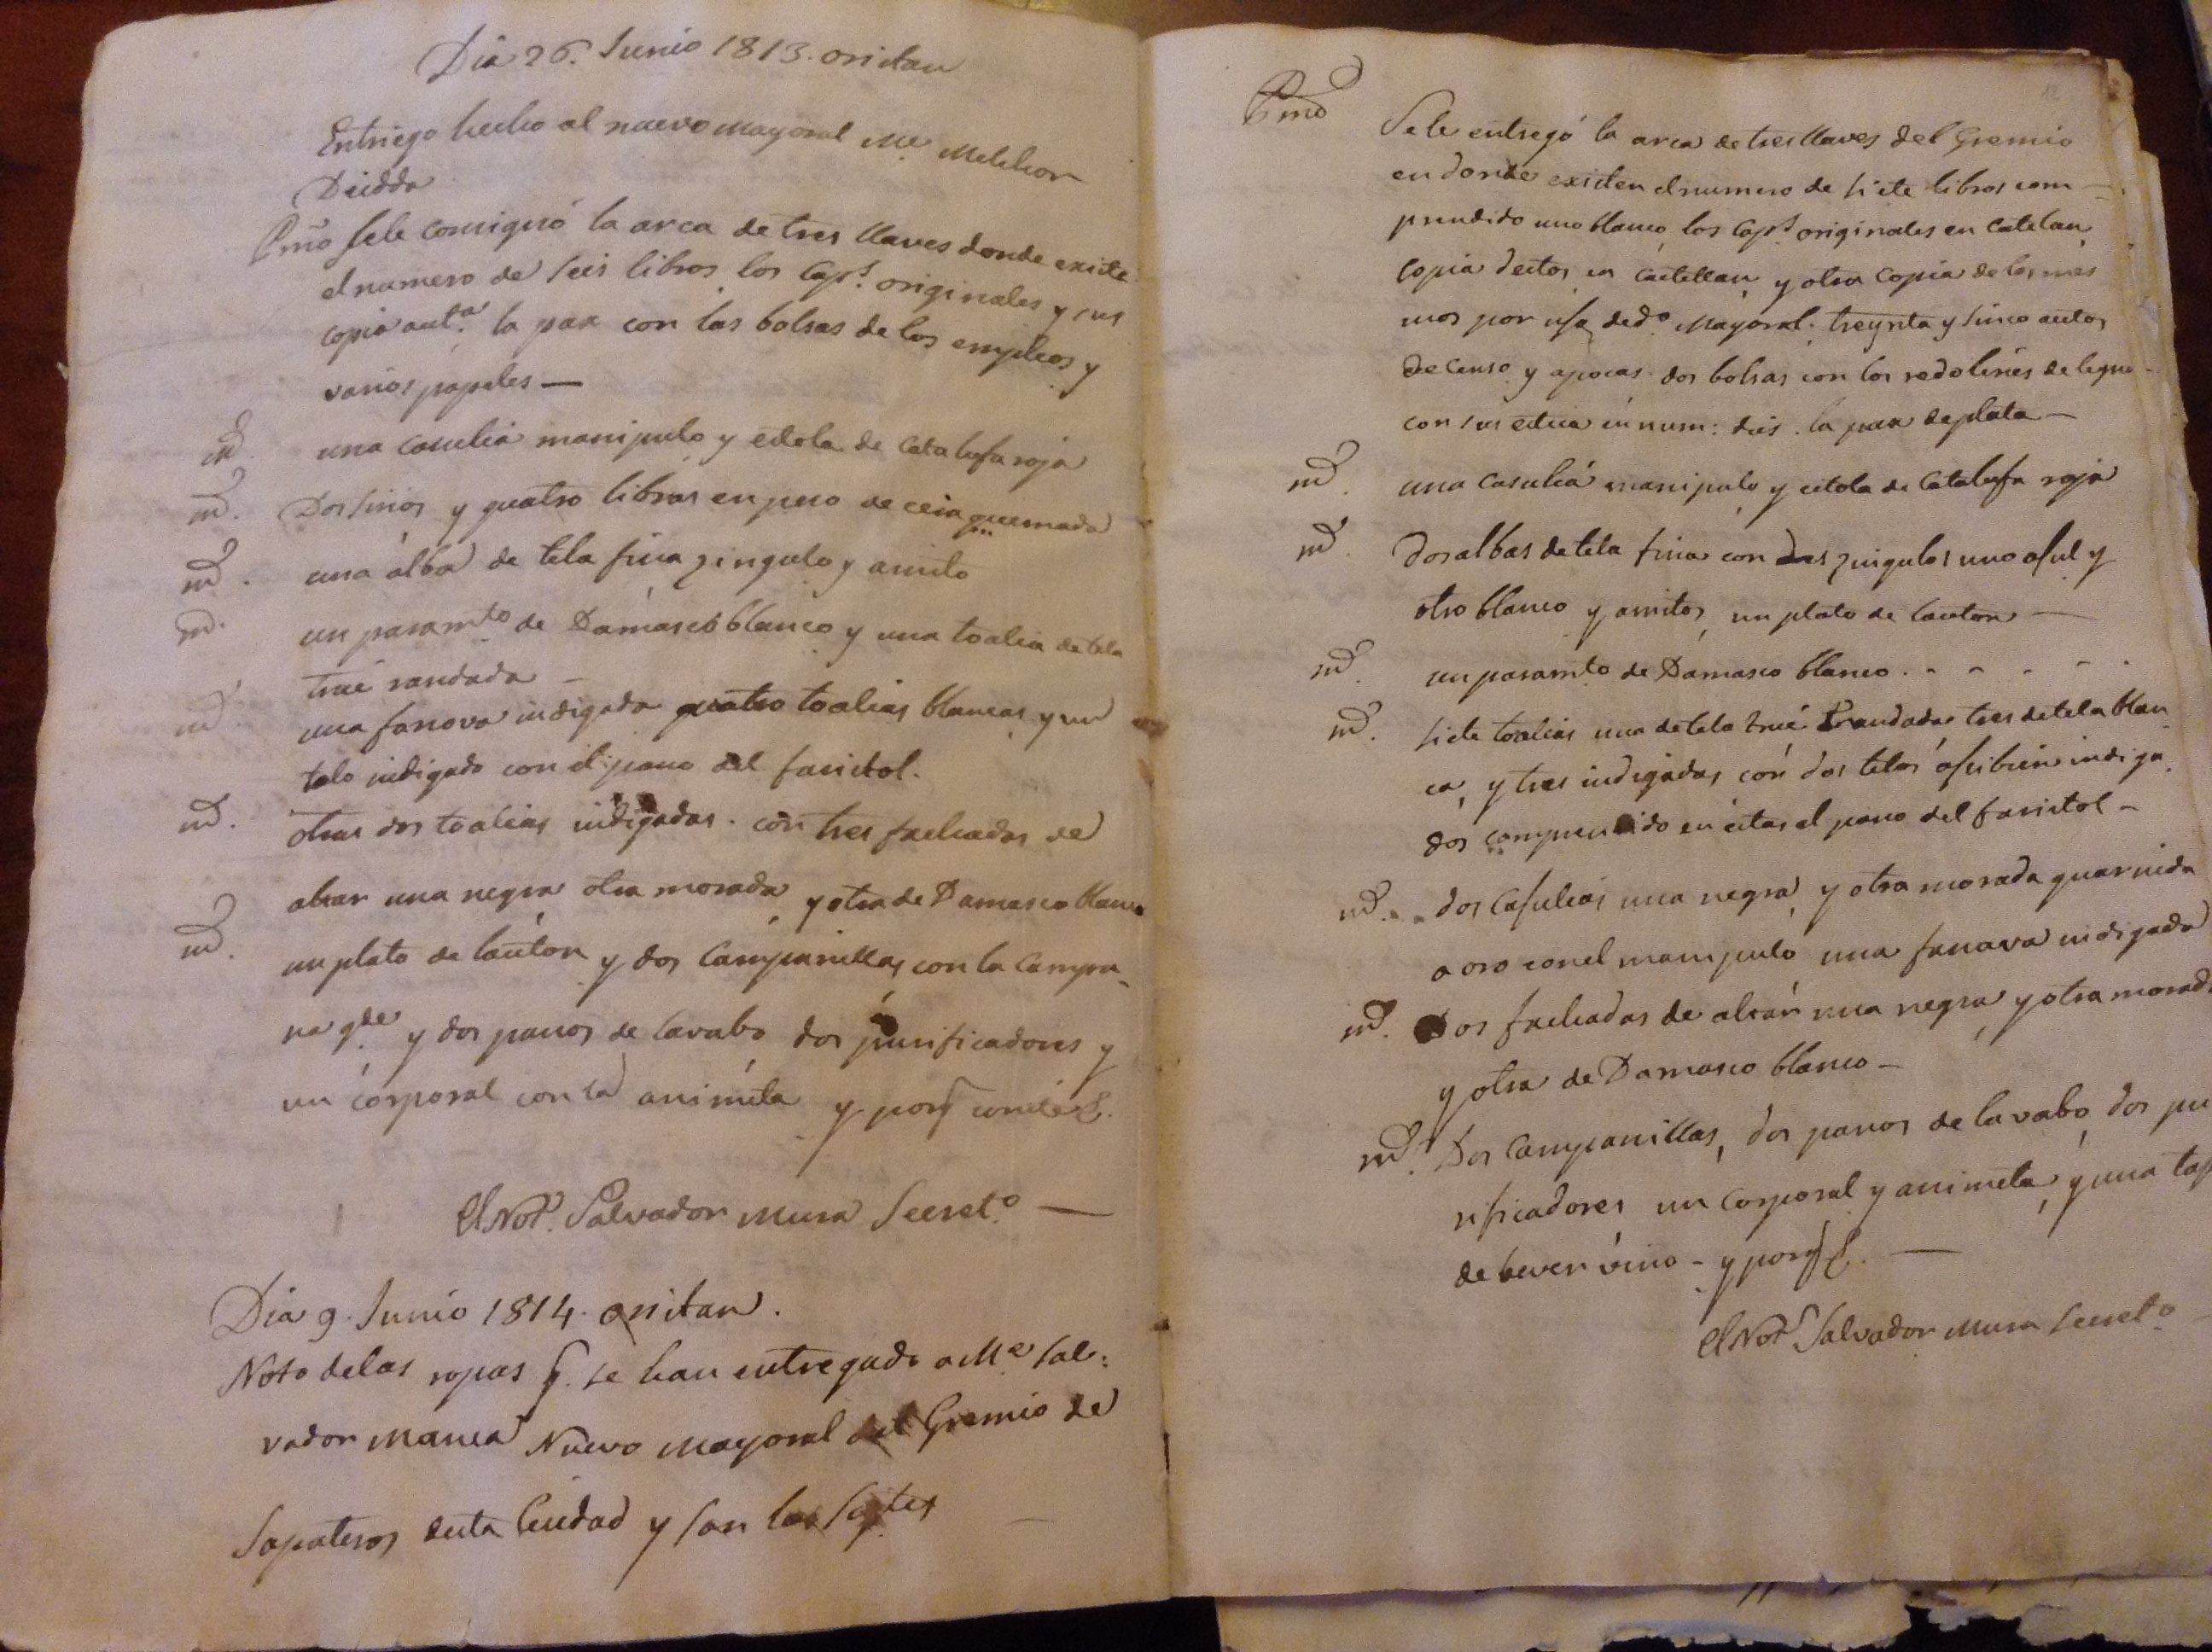 Dia 26. Junio 1813. oristan
Entriego hecho al nuevo mayoral Me. Melchor
Deidda
Pmo. se le consignó la arca de tres llaves donde existe
el numero de seis libros, los Caps. originales y sus
copia auta. la pax con las bolsas de los empleos y
varios papeles —
md. una casulia manipulo y estola de catalufa roja
md. Dos sirios y quatro libras en peso de cera quemada
md. una alba de tela fina zingulo y amito
md. un paramto. de Damasco blanco y una toalia de tela
trué randada —
md. una fanova indigada quatro toalias blancas y un
telo indigado con el pano del faristol.
md. otras dos toalias indigadas. con tres fachadas de
altar una negra otra morada y otra de Damasco blanco
md. un plato de lauton y dos campanillas con la campa-
na gde. y dos panos de lavabo dos purificadores y
un corporal con la animeta y porq. conste &.
El Not. Salvador Mura Secreto. —
Dia 9. Junio 1814. oristan.
Nota de las ropas q. se han entregado a Me. Sal:
vador Manca Nuevo Mayoral del Gremio de
Sapateros desta Ciudad y son las sigtes
Pmo
Se le entregó la arca de tres llaves del Gremio
en donde existen el numero de siete libros com-
prendido uno blanco, los Caps. originales en Catelan,
copia destos en castellan, y otra copia de los mes
mos por uso dedo. Mayoral. treynta y sinco autos
de censo y apocas. dos bolsas con los redolines de legno-
con sus estica en num: dies. la pax de plata —
md. una casulia manipulo y estola de catalufa roja
md. dos albas de tela fina con dos zingulos uno asul y
otro blanco y amitos, un plato de lauton —
md. un paramto de Damasco blanco . - - - - .
md. siete toalias una de tela trué randada tres de tela blan
ca, y tres indigadas, con dos telos asibien indiga
dos comprendido en estas el pano del faristol —
md. dos casulias una negra, y otra morada guarnida
a oro con el manipulo una fanova indigada
md. Dos fachadas de altar una negra y otra morada
y otra de Damasco blanco —
md. Dos campanillas, dos panos de lavabo, dos pu
rificadores un corporal y animeta, y una
de bever vino - y porq. &. —
El Not. Salvador Mura Secreto.